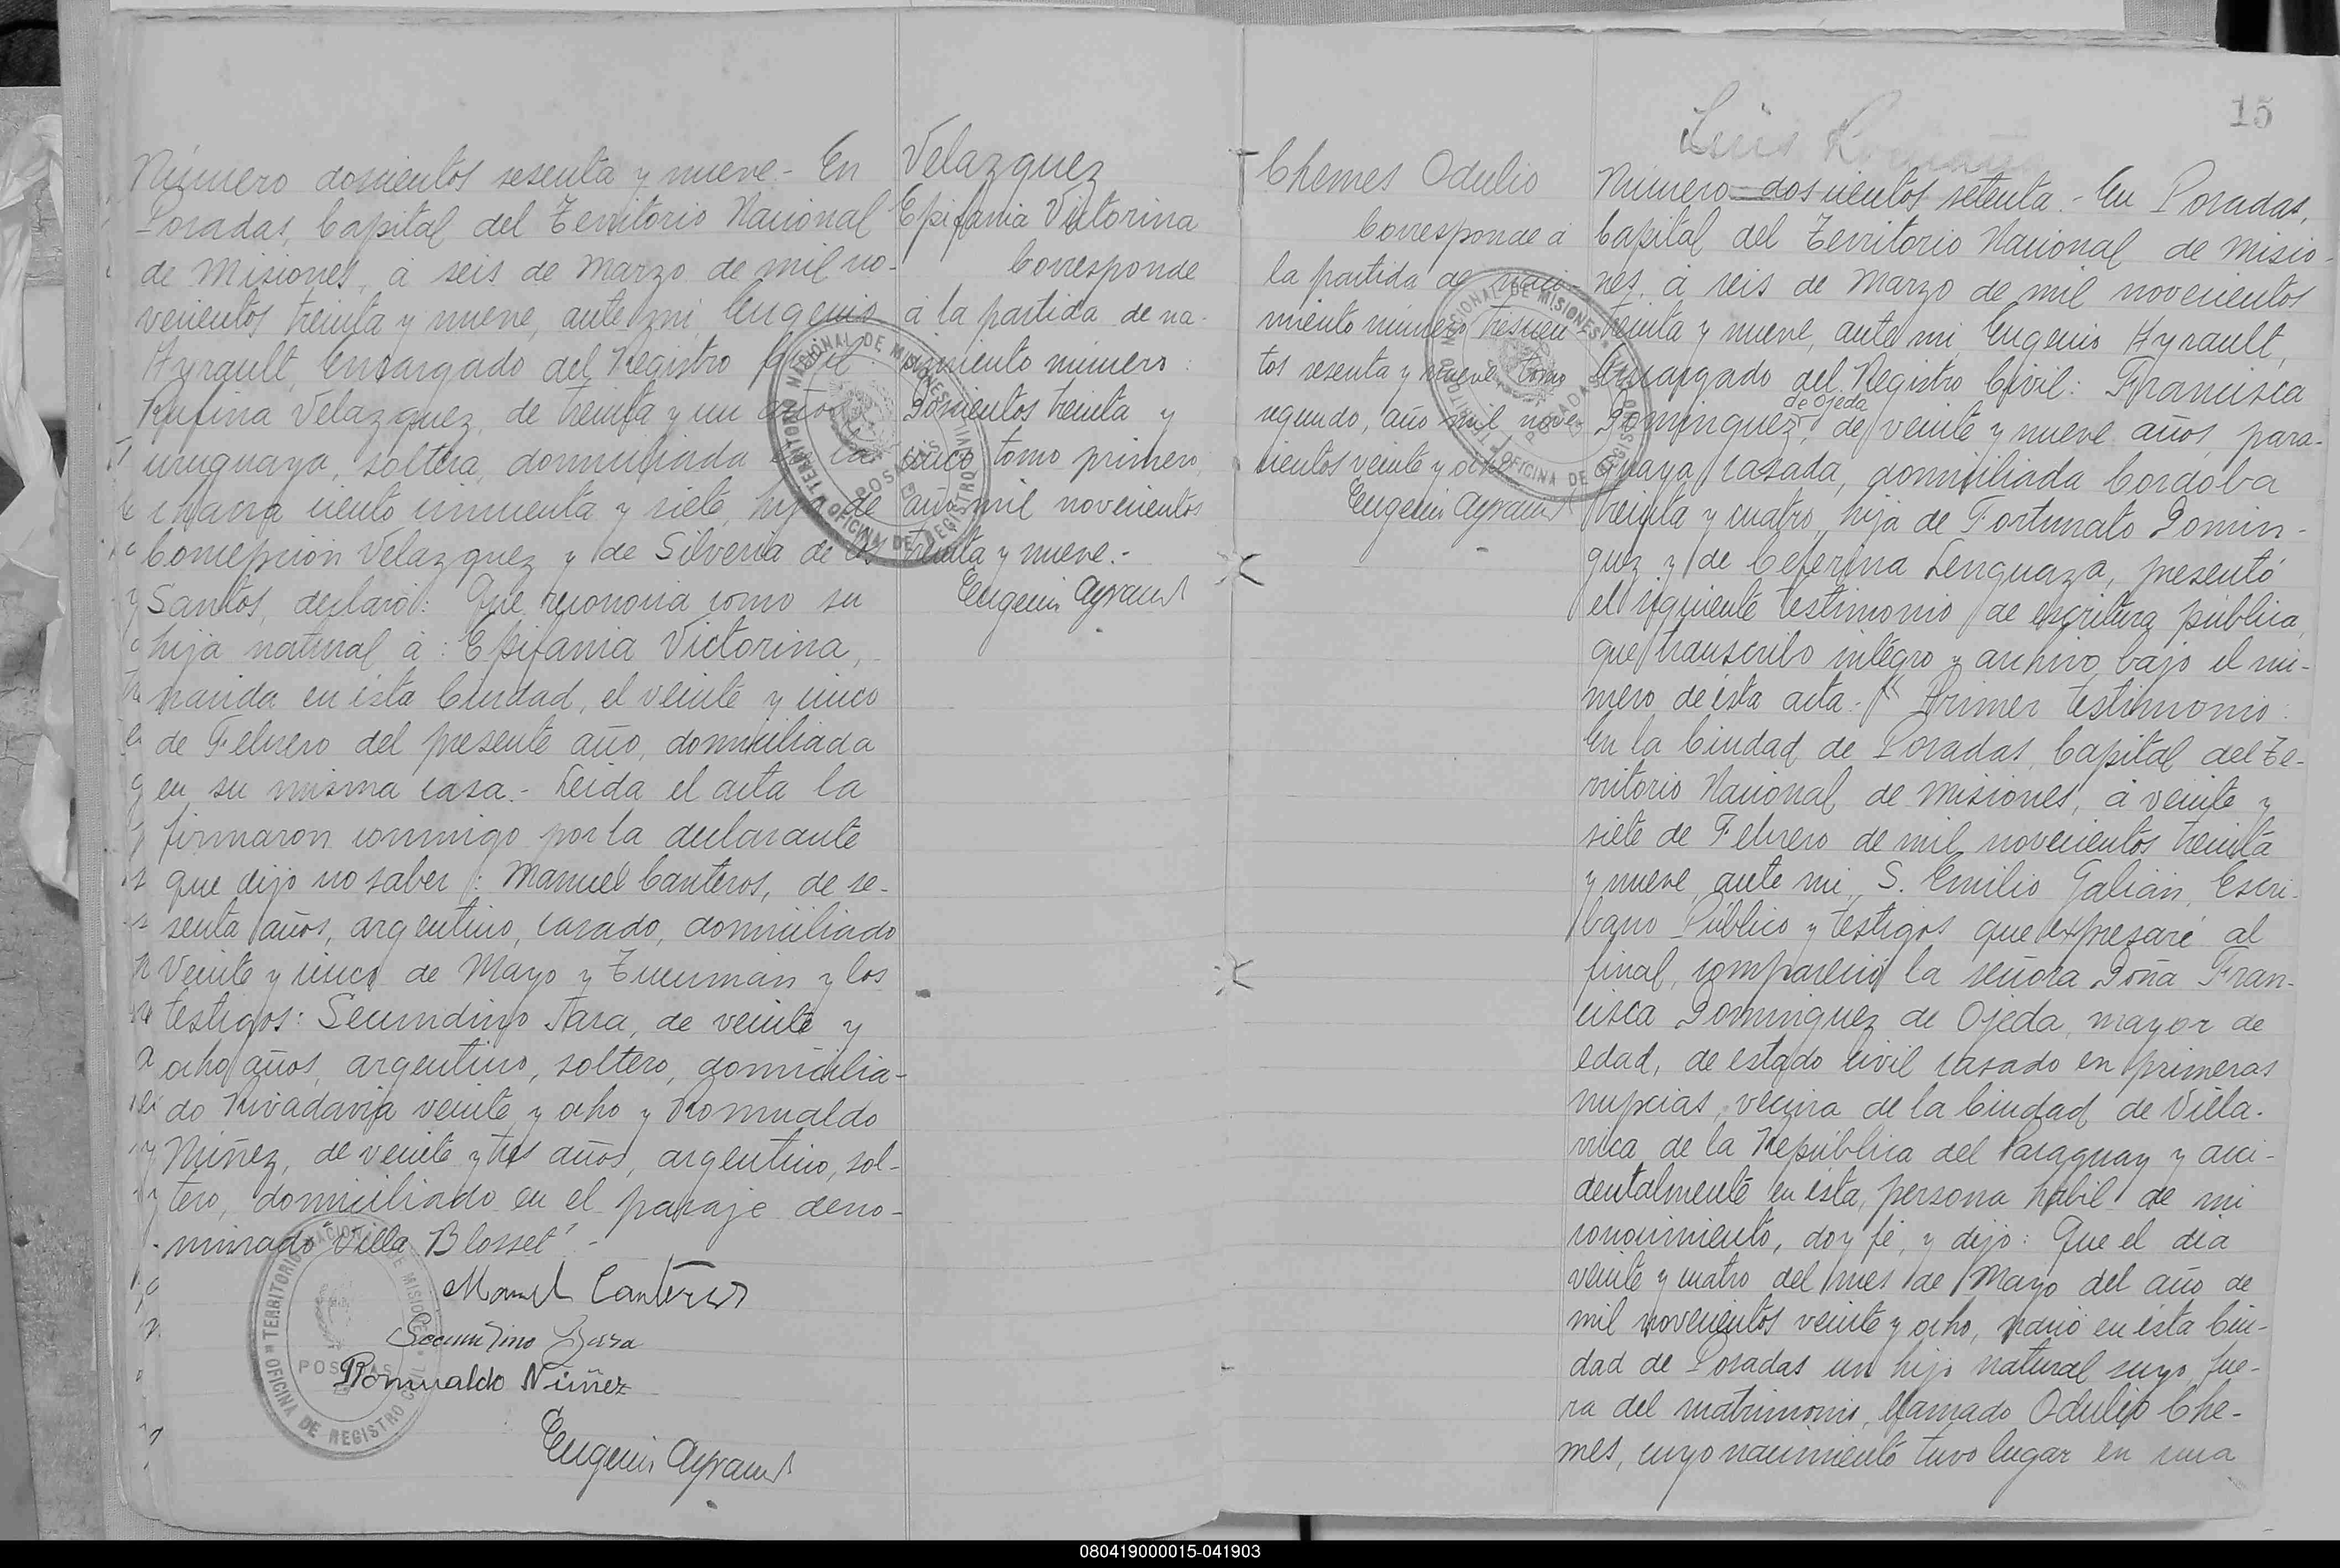 Número doscientos sesenta y nueve.- En
Posadas, Capital del Territorio Nacional
de Misiones, á seis de Marzo de mil no-
vecientos treinta y nueve, ante mi Eugenio
Ayrault, Encargado del Registro Civil:
Rufina Velazquez, de treinta y un años
uruguaya, soltera, domiciliada en la
chacra ciento cincuenta y siete, hija de
Concepción Velazquez y de Silveria de los
Santos, declaró: Que reconocia como su
hija natural á: Epifania Victorina,
nacida en ésta Ciudad, el veinte y cinco
de Febrero del presente año, domiciliada
en su misma casa.- Leida el acta la
firmaron conmigo por la declarante
que dijo no saber: Manuel Canteros, de se-
senta años, argentino, casado, domiciliado
Veinte y cinco de Mayo y Tucumán y los
testigos: Secundino Jara, de veinte y
ocho años, argentino, soltero, domicilia-
do Rivadavia veinte y ocho y Romualdo
Núñez, de veinte y tres años, argentino, sol-
tero, domiciliado en el paraje deno-
minado "Villa Blosset".-
Manuel Canteros
Secundino Jara
Romualdo Núñez
Eugenio Ayrault
TERRITORIO NACIONAL DE MISIONES
POSADAS
OFICINA DE REGISTRO CIVIL
Velazquez
Epifania Victorina
Corresponde
á la partida de na-
cimiento número:
Doscientos treinta y
cinco, tomo primero,
año mil novecientos
treinta y nueve.-
Eugenio Ayrault
TERRITORIO NACIONAL DE MISIONES
POSADAS
OFICINA DE REGISTRO CIVIL
15
Luis
Chemes Odulio
Corresponde á
la partida de naci-
miento número trescien-
tos sesenta y nueve tomo
segundo, año mil nove-
cientos veinte y ocho
Eugenio Ayrault
TERRITORIO NACIONAL DE MISIONES
POSADAS
OFICINA DE REGISTRO CIVIL
Número doscientos setenta.- En Posadas,
Capital del Territorio Nacional de Misio-
nes, á seis de Marzo de mil novecientos
treinta y nueve, ante mi Eugenio Ayrault,
Encargado del Registro Civil: Francisca
de Ojeda
Dominguez, de veinte y nueve años, para-
guaya, casada, domiciliada Cordoba
treinta y cuatro, hija de Fortunato Domin-
guez y de Ceferina Lenguaza, presentó
el siguiente testimonio de escritura pública,
que transcribo integro y archivo bajo el nú-
mero de ésta acta.- "Primer testimonio:
En la Ciudad de Posadas, Capital del Te-
rritorio Nacional de Misiones, á veinte y
siete de Febrero de mil novecientos treinta
y nueve, ante mi, S. Emilio Galián, Escri-
bano Público y testigos que expresaré al
final, compareció la señora Doña Fran-
cisca Dominguez de Ojeda, mayor de
edad, de estado civil casado en primeras
nupcias, vecina de la Ciudad de Villa-
rrica de la República del Paraguay y acci-
dentalmente en ésta, persona hábil de mi
conocimiento, doy fé, y dijo: Que el dia
veinte y cuatro del mes de Mayo del año de
mil novecientos veinte y ocho, nació en ésta Ciu-
dad de Posadas un hijo natural suyo, fue-
ra del matrimonio, llamado Odulio Che-
mes, cuyo nacimiento tuvo lugar en una
080419000015-041903